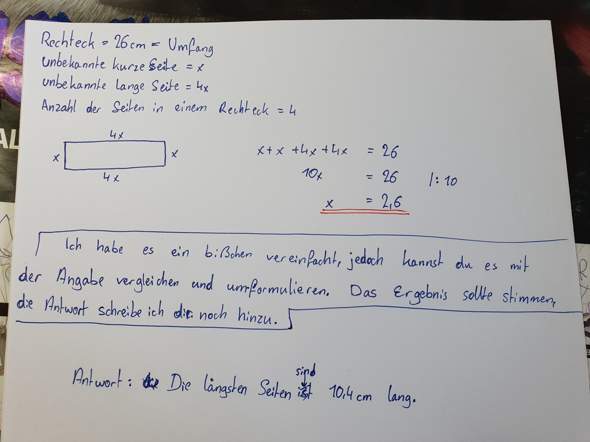 Rechteck = 26cm = Umfang
unbekannte kurze Seite = x
unbekannte lange Seite = 4x
Anzahl der Seiten in einem Rechteck = 4
4x
x x
4x
x+x +4x+4x = 26
10x = 26 /:10
x = 2,6
Ich habe es ein bißchen vereinfacht, jedoch kannst du es mit
der Angabe vergleichen und umformulieren. Das Ergebnis sollte stimmen,
die Antwort schreibe ich dir noch hinzu.
sind
Antwort: Die längsten Seiten 10,4cm lang.